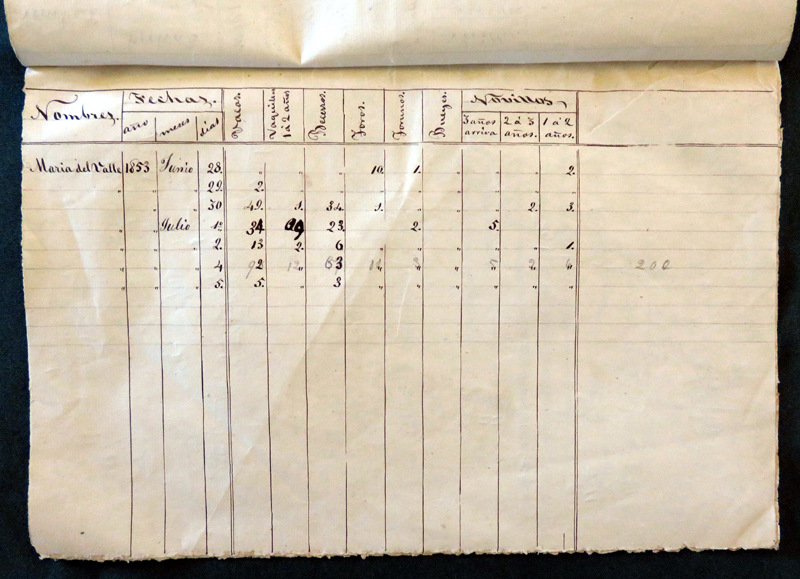 Nombres. Fechas. Vacas. Vaquillas 1 á 2 años Becerros. Toros. Torunos. Bueyes. Novillos,
año meses días 3 años arriva 2 á 3 años. 1 á 2 años.
Maria del Valle 1853 Junio 28. " " " 10. 1. " " " 2.
" " " 29. 2. " " " " " " " "
" " " 30 49. 1. 34. 1. " " " 2. 3.
" " Julio 1º 34 23. " 2. " 5. " "
" " " 2. 13 2. 6 " " " " " 1.
" " " 4 92 12 63 " " 200
" " " 5. 5. " 3 " " " " " "